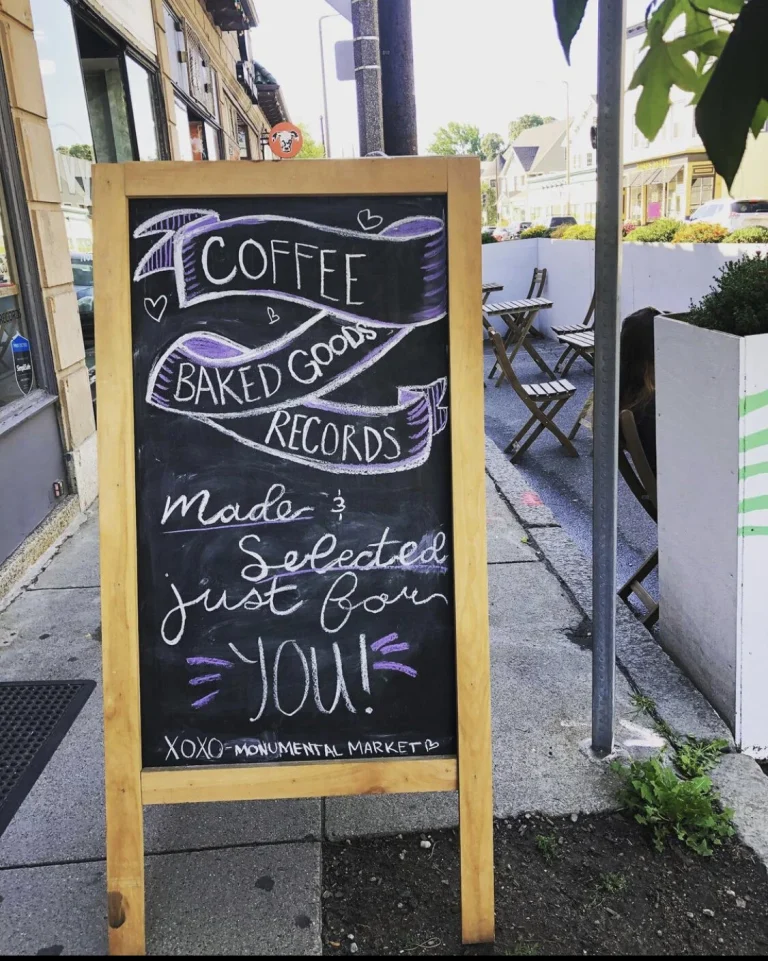 COFFEE
BAKED GOODS
RECORDS
made &
Selected
just for
YOU!
XOXO-MONUMENTAL MARKET